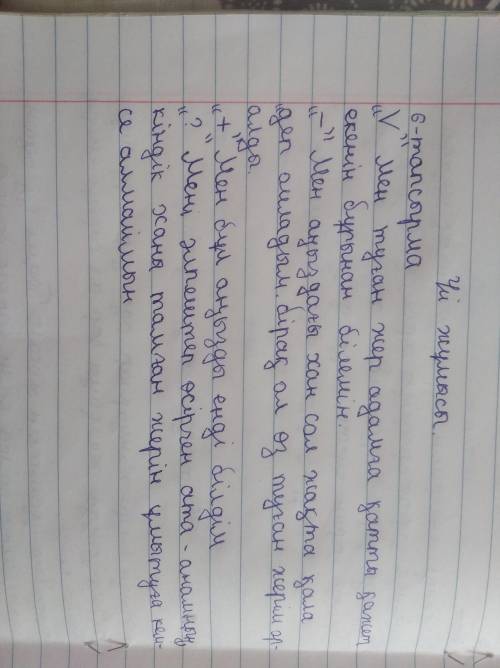 Үй жұмысы.
6-тапсырма
„V" Мен туған жер адамға қатты қажет
екенін бұрынан білемін.
„–" Мен аңыздағы хан сол жақта қала
деп ойладым. бірақ ол өз туған жерін әр-
алды.
„+" Мен бұл аңызды енді білдім
„?" Мені әлпештеп өсірген ата-анамның
кіндік жаны тамған жерін ұмытуға кел-
се алмаймын